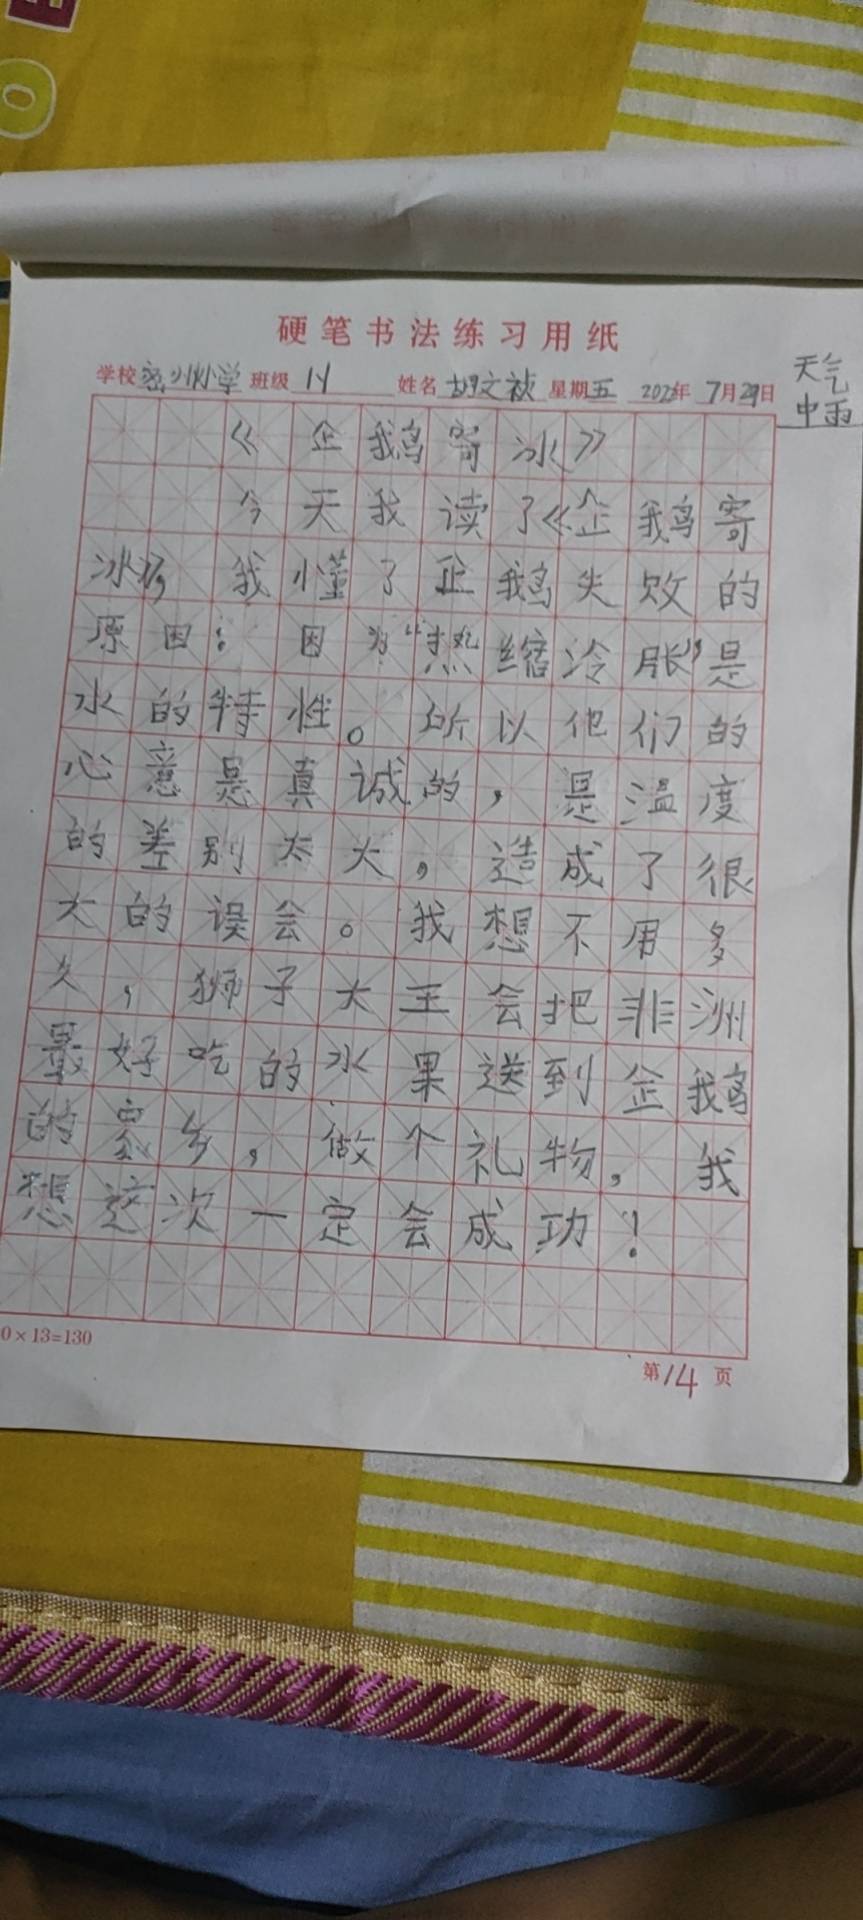 硬笔书法练习用纸
学校密州小学 班级 1.4 姓名 胡文祯 星期五 2022年 7月29日
天气
中雨
《企鹅寄冰》
今天我读了《企鹅寄
冰》，我懂了企鹅失败的
原因：因为“热缩冷胀”是
水的特性。所以他们的
心意是真诚的，是温度
的差别太大，造成了很
大的误会。我想不用多
久，狮子大王会把非洲
最好吃的水果送到企鹅
的家乡，做个礼物，我
想这次一定会成功！
0×13=130
第14页